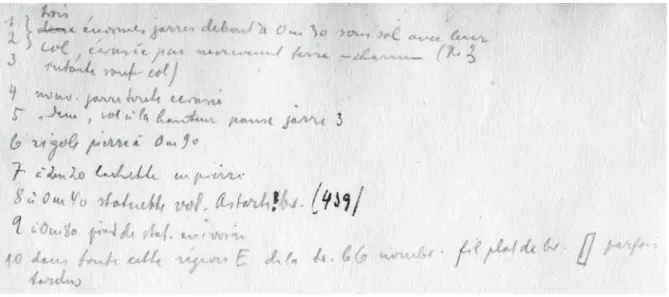 trois
1 } deux énormes jarres debout à 0m30 sous sol avec leur
2 } col, écrasée par mouvement terre - (No 3
3 intacte sauf col)
4 jarre écrasée
5 idem, col à la hauteur panse jarre 3
6 rigole pierre à 0m90
7 à 2m20 cachette en pierre
8 à 0m40 statuette vot. Astarté? br. (439)
9 à 0m80 pied de stat. en ivoire
10 dans toute cette région E de la te. 66 nombr. fil plat de br. [] parfois
tordus